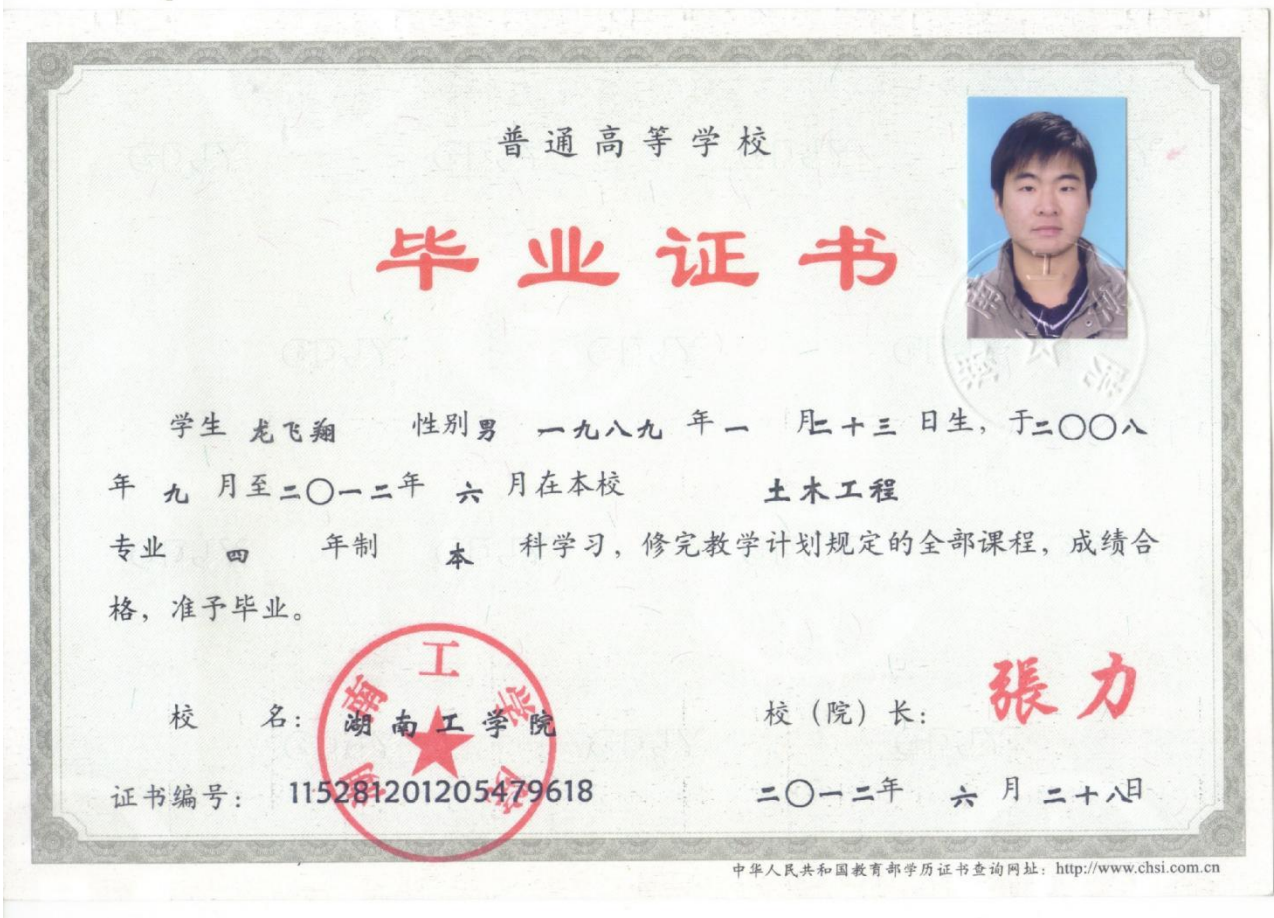 普通高等学校
毕业证书
学生 龙飞翔 性别 男 一九八九 年 一 月 二十三 日生，于 二〇〇八
年 九 月至 二〇一二 年 六 月在本校 土木工程
专业 四 年制 本 科学习，修完教学计划规定的全部课程，成绩合
格，准予毕业。
校 名： 湖南工学院
校（院）长： 張力
湖南工学院
证书编号： 115281201205479618
二〇一二 年 六 月 二十八 日
中华人民共和国教育部学历证书查询网址：http://www.chsi.com.cn